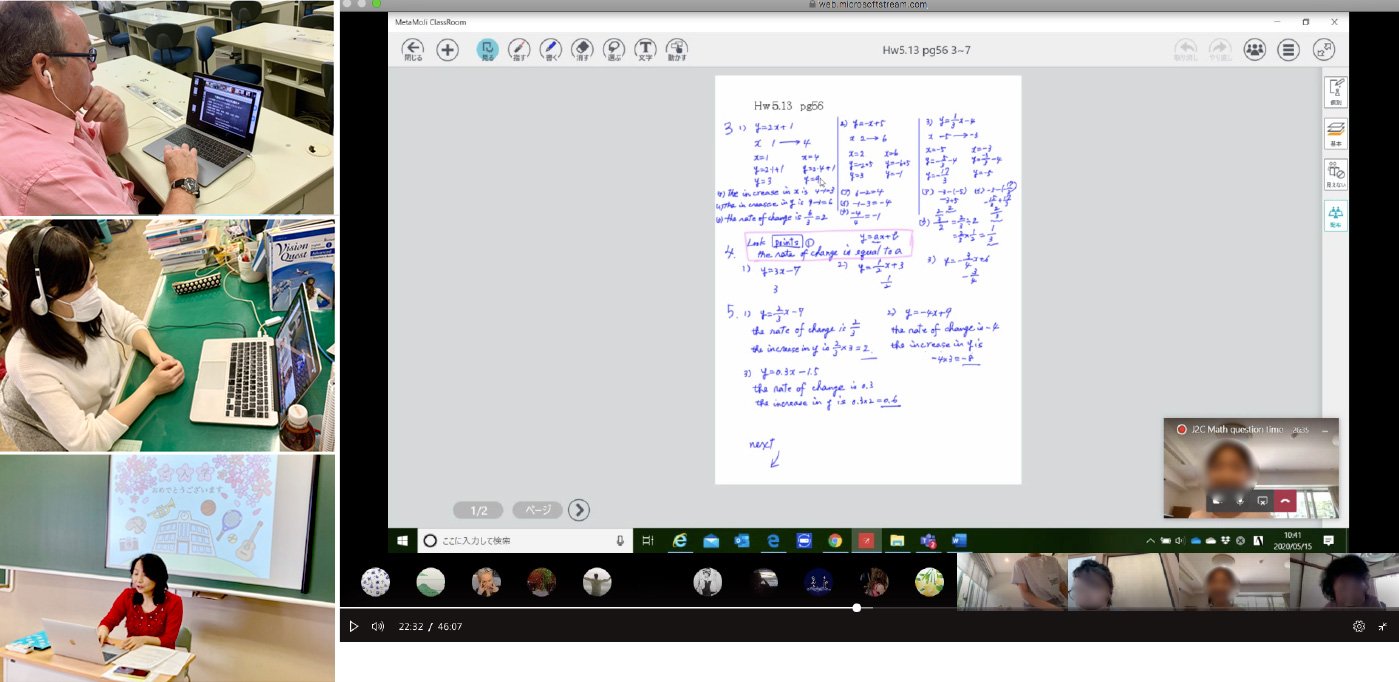 Vision Quest
おめでとうございます
web.microsoftstream.com
MetaMoJi ClassRoom
閉じる
見る
指す
書く
消す
選ぶ
文字
動かす
Hw5.13 pg56 3~7
取り消し
やり直し
個別
基本
見えない
配布
Hw5.13 pg56
3 1) y=2x+1
x 1 → 4
x=1 x=4
y=2·1+1 y=2·4+1
y=3 y=9
(ア) the increase in x is 4-1=3
(イ) the increase in y is 9-3=6
(ウ) the rate of change is 6/3=2
2) y=-x+5
x 2 → 6
x=2 x=6
y=-2+5 y=-6+5
y=3 y=-1
(ア) 6-2=4
(イ) -1-3=-4
(ウ) -4/4=-1
3) y=1/3x-4
x -5 → -3
x=-5 x=-3
y=-5/3-4 y=-3/3-4
y=-17/3 y=-5
4. Look points ① y=ax+b
the rate of change is equal to a
1) y=3x-7
3
2) y=1/2x+3
1/2
3) y=-3/4x+6
-3/4
5. 1) y=2/3x-7
the rate of change is 2/3
the increase in y is 2/3×3=2
2) y=-4x+9
the rate of change is -4
the increase in y is
3) y=0.3x-1.5
the rate of change is 0.3
the increase in y is 0.3×2=0.6
next
1/2
ページ
J2C Math question time
ここに入力して検索
10:41
2020/05/15
22:32 / 46:07